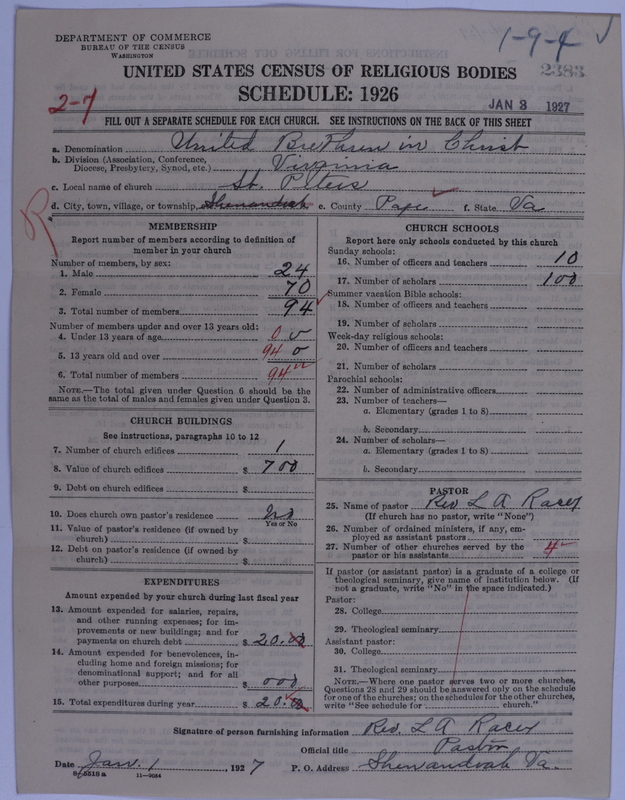 DEPARTMENT OF COMMERCE
BUREAU OF THE CENSUS
WASHINGTON
1-9-4
2383
UNITED STATES CENSUS OF RELIGIOUS BODIES
SCHEDULE: 1926
2-7
JAN 3 1927
FILL OUT A SEPARATE SCHEDULE FOR EACH CHURCH. SEE INSTRUCTIONS ON THE BACK OF THIS SHEET
a. Denomination United Brethren in Christ
b. Division (Association, Conference, Diocese, Presbytery, Synod, etc.) Virginia
c. Local name of church St. Peters
d. City, town, village, or township Shenandoah e. County Page f. State Va
R
MEMBERSHIP
Report number of members according to definition of
member in your church
Number of members, by sex:
1. Male 24
2. Female 70
3. Total number of members 94
Number of members under and over 13 years old:
4. Under 13 years of age 0
5. 13 years old and over 94 0
6. Total number of members 94
NOTE.—The total given under Question 6 should be
same as the total of males and females given under Question 3.
CHURCH BUILDINGS
See instructions, paragraphs 10 to 12
7. Number of church edifices 1
8. Value of church edifices $ 700
9. Debt on church edifices $
10. Does church own pastor's residence No
Yes or No
11. Value of pastor's residence (if owned by
church) $
12. Debt on pastor's residence (if owned by
church) $
EXPENDITURES
Amount expended by your church during last fiscal year
13. Amount expended for salaries, repairs,
and other running expenses; for im-
provements or new buildings; and for
payments on church debt $ 20.00
14. Amount expended for benevolences, in-
cluding home and foreign missions; for
denominational support; and for all
other purposes $ 000
15. Total expenditures during year $ 20.00
CHURCH SCHOOLS
Report here only schools conducted by this church
Sunday schools:
16. Number of officers and teachers 10
17. Number of scholars 100
Summer vacation Bible schools:
18. Number of officers and teachers
19. Number of scholars
Week-day religious schools:
20. Number of officers and teachers
21. Number of scholars
Parochial schools:
22. Number of administrative officers
23. Number of teachers—
a. Elementary (grades 1 to 8)
b. Secondary
24. Number of scholars—
a. Elementary (grades 1 to 8)
b. Secondary
PASTOR
25. Name of pastor Rev L A Racey
(If church has no pastor, write "None")
26. Number of ordained ministers, if any, em-
ployed as assistant pastors
27. Number of other churches served by the
pastor or his assistants 4
If pastor (or assistant pastor) is a graduate of a college or
theological seminary, give name of institution below. (If
not a graduate, write "No" in the space indicated.)
Pastor:
28. College
29. Theological seminary
Assistant pastor:
30. College
31. Theological seminary
NOTE.—Where one pastor serves two or more churches,
Questions 28 and 29 should be answered only on the schedule
for one of the churches; on the schedules for the other churches,
write "See schedule for church."
Signature of person furnishing information Rev. L A Racey
Official title Pastor
Date Jan. 1, 1927 P. O. Address Shenandoah Va.
11—9084